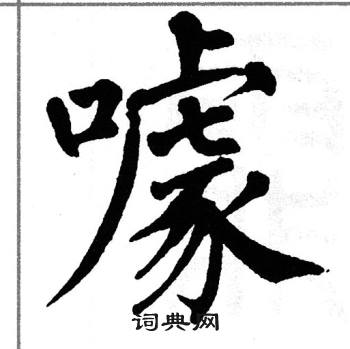 噱
词典网